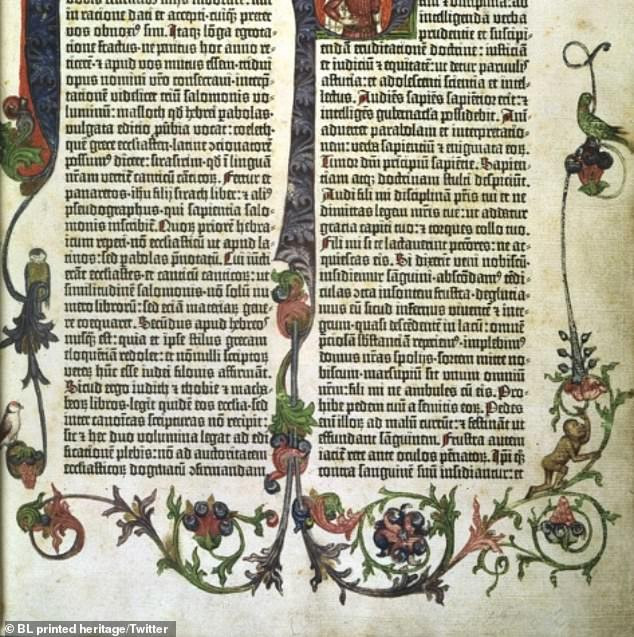 in racione dati et accepti·cuiq; prete
vos obnoxi⁹ sim. Itaq; lōga egrota-
tione fractus·ne penitus hoc anno re-
ticerē·et apud vos mutus essem·tridui
opus nomini vr̄o consecraui·interp̄-
tationē videlicet triū salomonis vo-
luminū: masloth qd̄ hebrei pabolas·
vulgata editio ꝓūbia vocat: coeleth·
quē grece ecclesiasten·latine ꝯcionatorē
possum⁹ dicere: sirasirim·qd̄ ī linguā
nr̄am vertit̄ canticū cāticoꝝ. Fertur et
panaretos·ihū filij sirach liber: ⁊ ali⁹
pseudographus·qui sapientia salo-
monis inscribit̄. Quoꝝ priorē hebra-
icum reperi·nō ecclesiasticū ut apud la-
tinos: sed pabolas p̄notatū. Cui iūcti
erāt ecclesiastes·et canticū canticoꝝ: ut
similitudinē salomonis·nō solū nu-
mero libroꝝ: sed etiā materiaꝝ gene-
re coequaret. Secūdus apud hebreos
nusq̄ est: quia et ipse stilus grecam
eloquētiā redolet: et nōnulli scriptoꝝ
veteꝝ hūc esse iudei filonis affirmāt.
Sicud ergo iudith ⁊ thobie ⁊ macha-
beoꝝ libros·legit quidē eos ecclesia·sed
inter canōicas scripturas nō recipit:
sic ⁊ hec duo volumina legat ad edi-
ficationē plebis: nō ad auctoritatem
ecclesiasticoꝝ dogmatū ꝯfirmandam.
intelligenda verba
prudentie et suscipi-
endā eruditationē doctrine: iusticiā
et iudiciū ⁊ equitatē: ut detur paruulis
astutia: et adolescenti scientia et intel-
lectus. Audiēs sapiēs sapientior erit: ⁊
intelligēs gubernacla possidebit. Ani-
aduertet parabolam et interpretatio-
nem: verba sapientiū ⁊ enigmata eoꝝ.
Timor dn̄i principiū sapientie. Sapien-
tiam atq; doctrinam stulti despiciūt.
Audi fili mi disciplinā pr̄is tui et ne
dimittas legem mr̄is tue: ut addatur
gracia capiti tuo: ⁊ torques collo tuo.
Fili mi si te lactauerint peccatores: ne ac-
quiescas eis. Si dixerint veni nobiscū·
insidiemur sanguini·abscōdam⁹ tēdi-
culas ꝯtra insontem frustra·deglutia-
mus eū sicud infernus viuentē ⁊ inte-
grum·quasi descēdentē in lacū: omnē
p̄ciosā substātiā reperiem⁹·implebim⁹
domus nr̄as spolijs·sortem mitte no-
biscum·marsupiū sit unum omniū
nr̄m: fili mi ne ambules cū eis. Pro-
hibe pedem tuū a semitis eoꝝ. Pedes
enī illoꝝ ad malū currūt: ⁊ festināt ut
effundant sanguinem. Frustra autem
iacit̄ rete ante oculos pēnatoꝝ. Ipi q;
contra sanguinē suū insidiantur: et
© BL printed heritage/Twitter